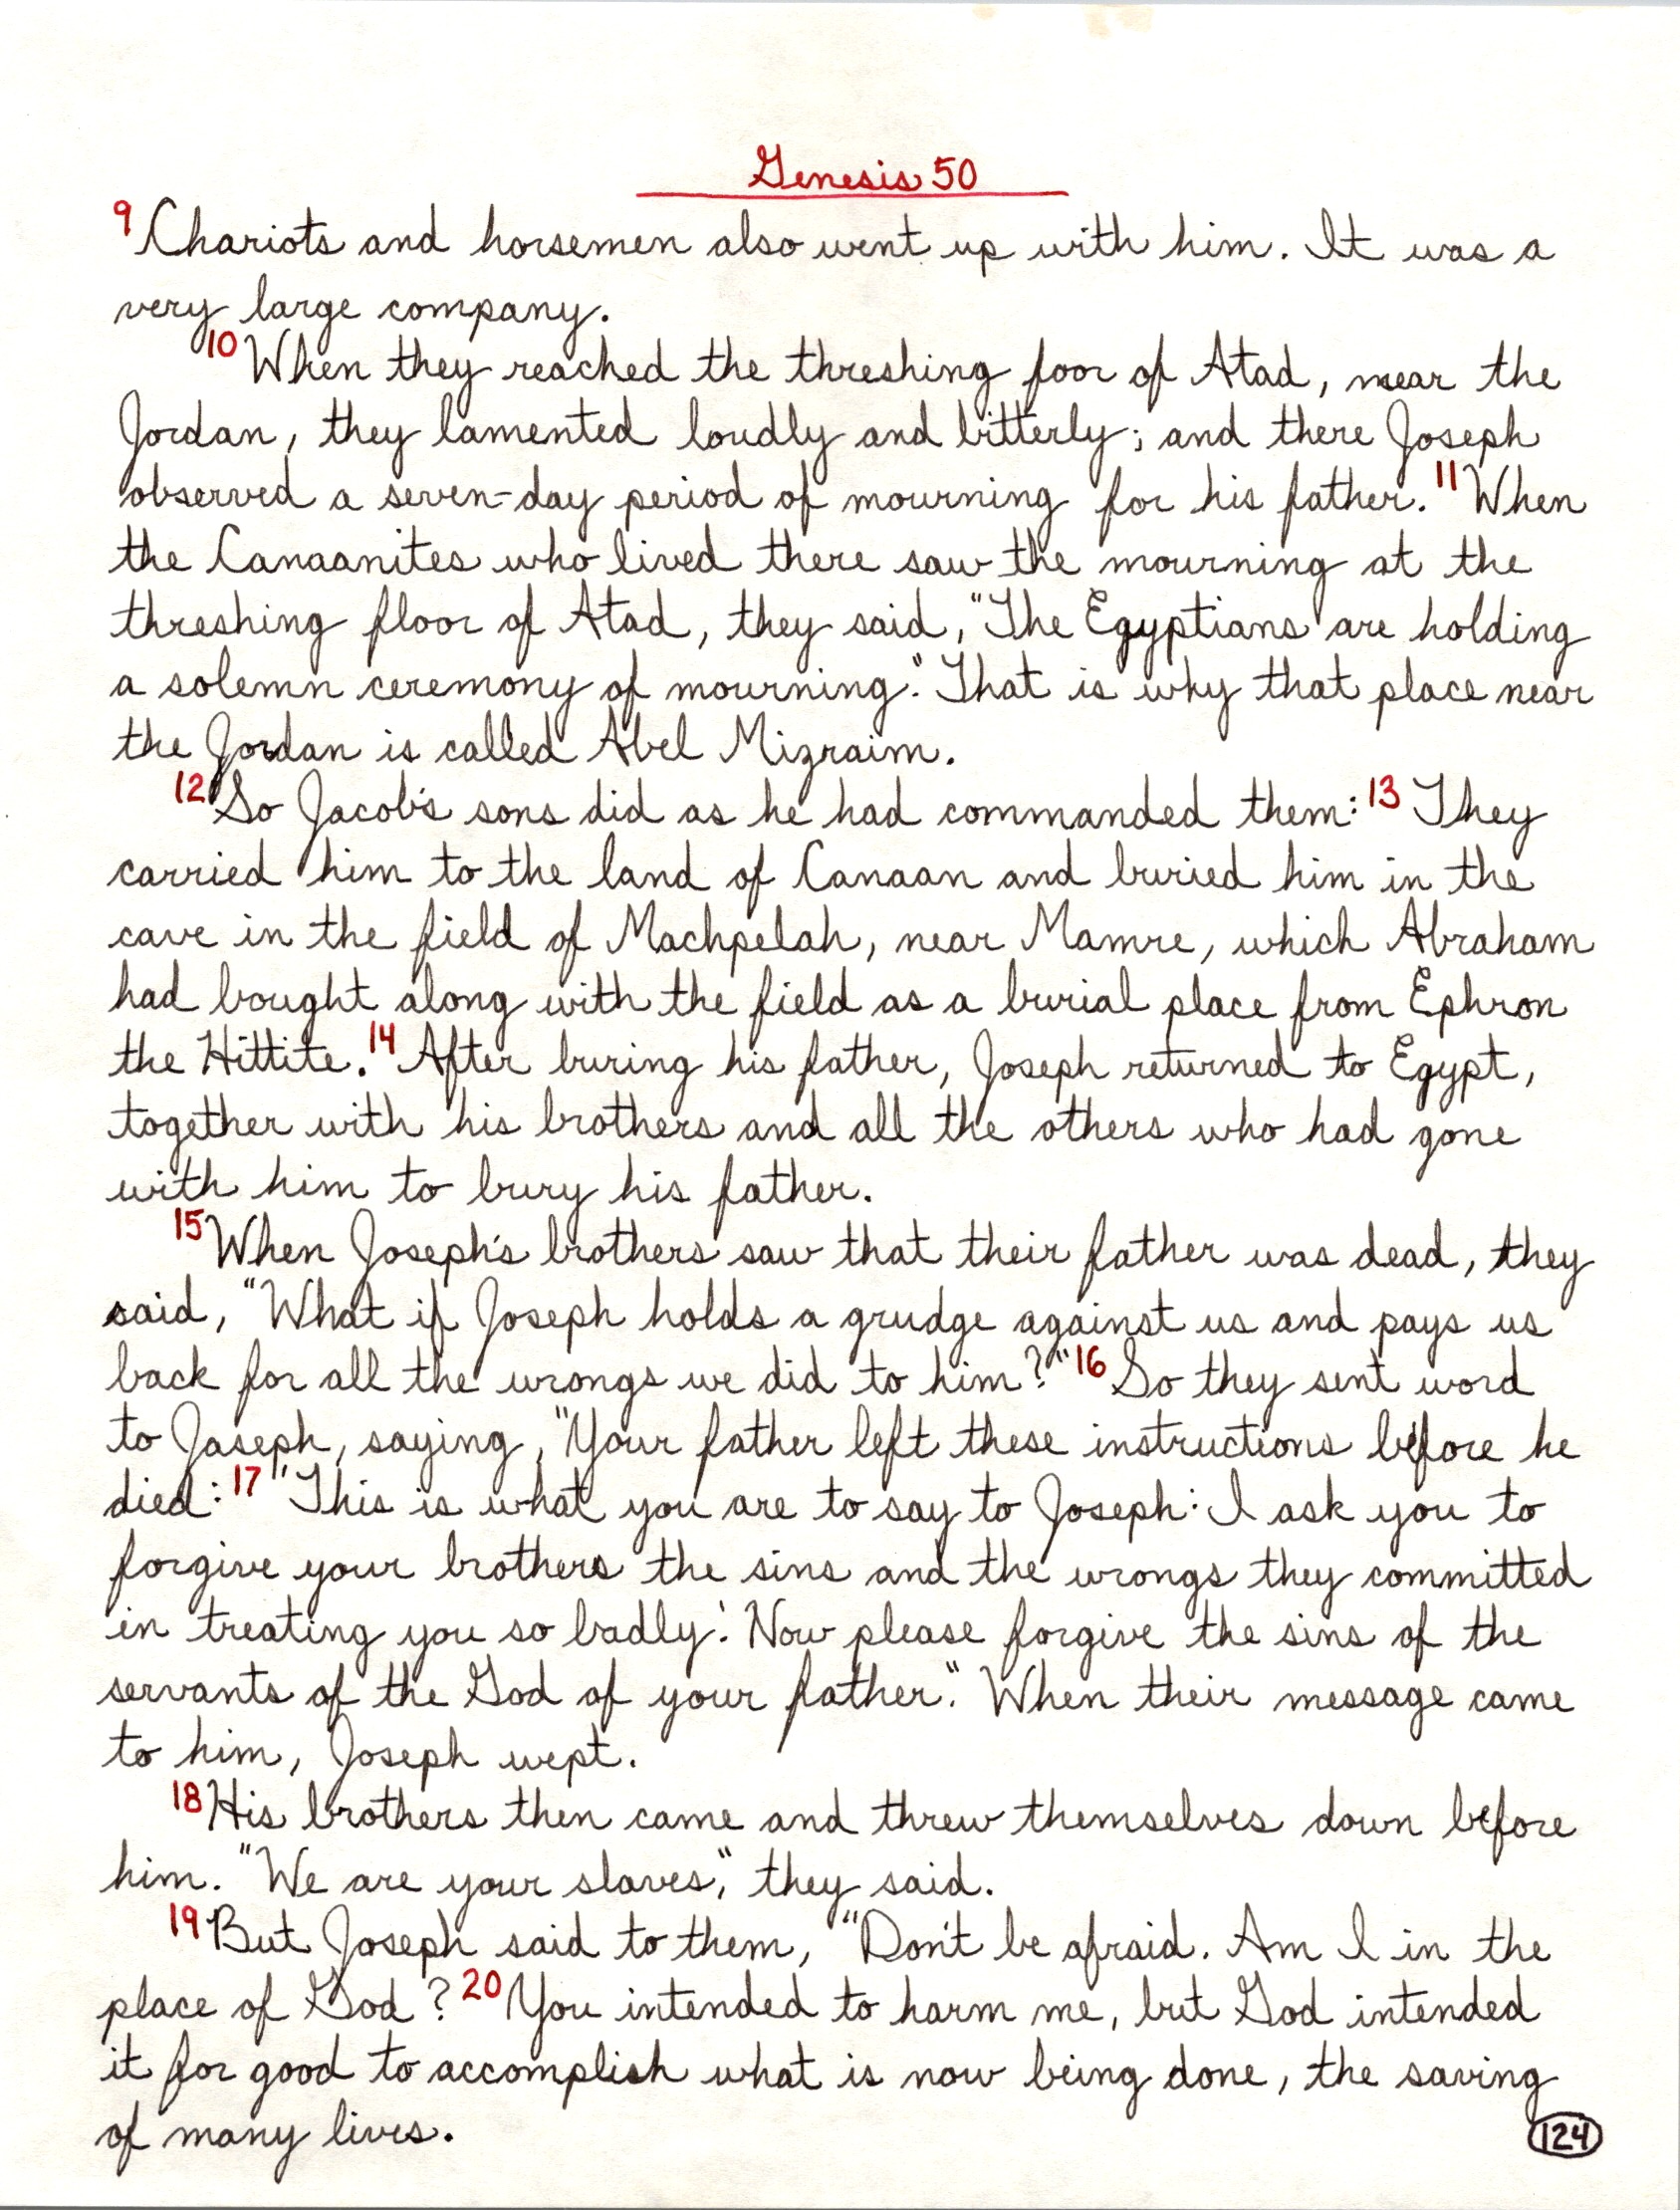 Genesis 50
9 Chariots and horsemen also went up with him. It was a
very large company.
10 When they reached the threshing foor of Atad, near the
Jordan, they lamented loudly and bitterly; and there Joseph
observed a seven-day period of mourning for his father. 11 When
the Canaanites who lived there saw the mourning at the
threshing floor of Atad, they said, "The Egyptians are holding
a solemn ceremony of mourning." That is why that place near
the Jordan is called Abel Mizraim.
12 So Jacob's sons did as he had commanded them: 13 They
carried him to the land of Canaan and buried him in the
cave in the field of Machpelah, near Mamre, which Abraham
had bought along with the field as a burial place from Ephron
the Hittite. 14 After buring his father, Joseph returned to Egypt,
together with his brothers and all the others who had gone
with him to bury his father.
15 When Joseph's brothers saw that their father was dead, they
said, "What if Joseph holds a grudge against us and pays us
back for all the wrongs we did to him?" 16 So they sent word
to Jaseph, saying, "Your father left these instructions before he
died: 17 "This is what you are to say to Joseph: I ask you to
forgive your brothers the sins and the wrongs they committed
in treating you so badly.' Now please forgive the sins of the
servants of the God of your father." When their message came
to him, Joseph wept.
18 His brothers then came and threw themselves down before
him. "We are your slaves," they said.
19 But Joseph said to them, "Don't be afraid. Am I in the
place of God? 20 You intended to harm me, but God intended
it for good to accomplish what is now being done, the saving
of many lives.
124